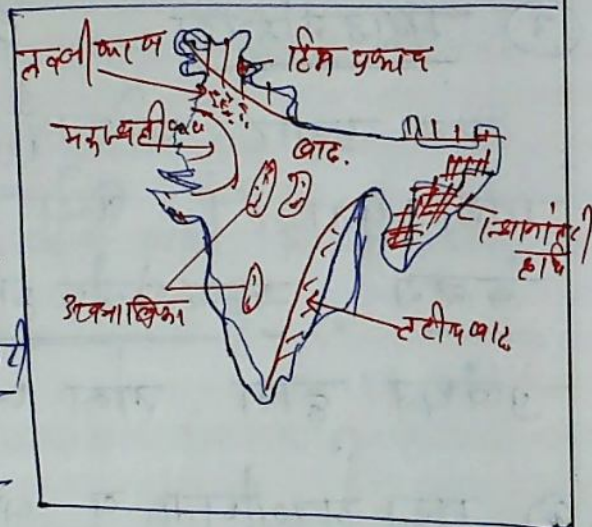 लवणीकरण
हिम प्रभाव
मरुस्थलीकरण
बाढ़.
स्थानांतरी
कृषि
अवनालिका
तटीय बाढ़
टी